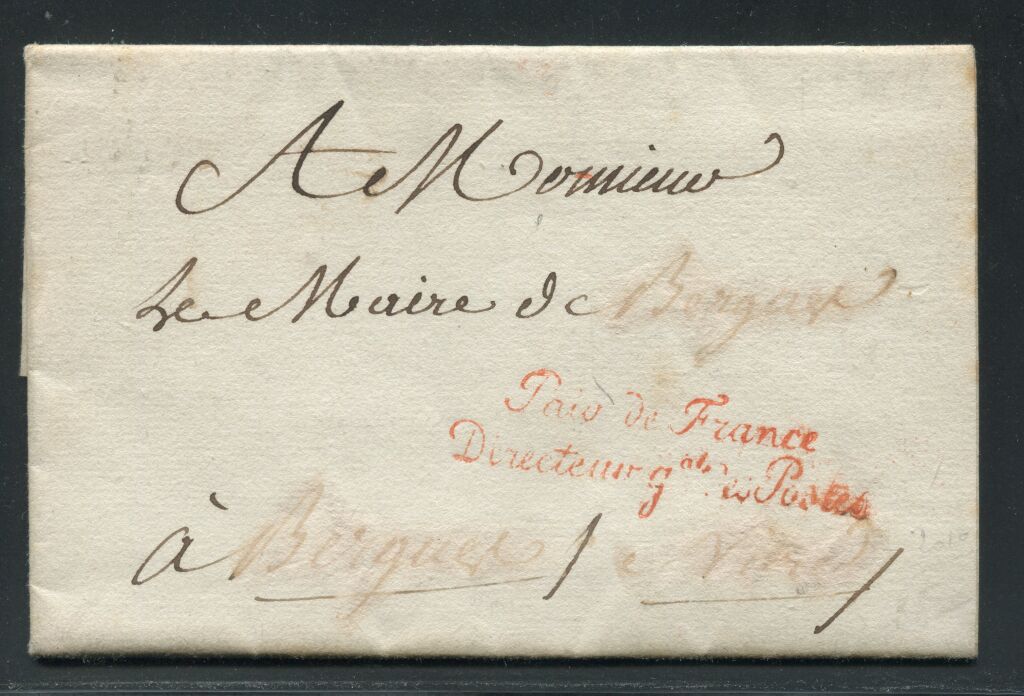 A Monsieur
Le Maire de Bergues
Pair de France
Directeur gal des Postes
à Bergues / Nord /